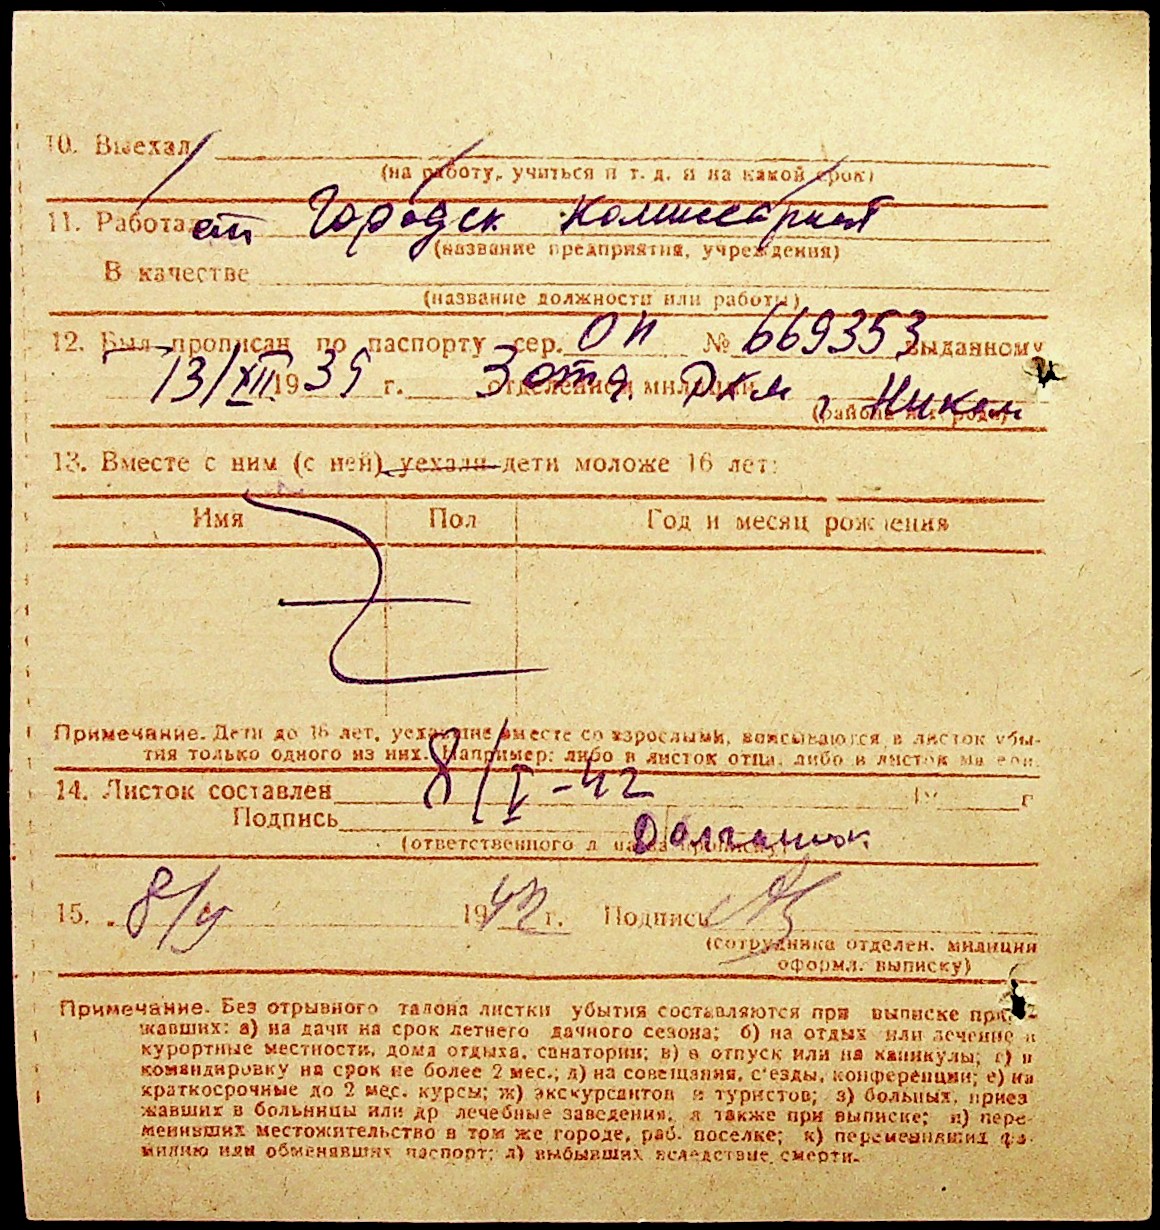 10. Выехал
(на работу, учиться и т. д. и на какой срок)
11. Работал ет Городск Комиссариат
(название предприятия, учреждения)
В качестве
(название должности или работы)
12. Был прописан по паспорту сер. ОП № 669353 выданному
13/XII 1935 г. 3 отд отделением милиции РКМ г
(района и города)
13. Вместе с ним (с ней) уехали дети моложе 16 лет:
Имя Пол Год и месяц рождения
Примечание. Дети до 16 лет, уехавшие вместе со взрослыми, вписываются в листок убы-
тия только одного из них. Например: либо в листок отца, либо в листок матери.
14. Листок составлен 8/V-42 19 г
Подпись
(ответственного л за прописку)
15. 8/V 1942 г. Подпись
(сотрудника отделен. милиции
оформл. выписку)
Примечание. Без отрывного талона листки убытия составляются при выписке приез-
жавших: а) на дачи на срок летнего дачного сезона; б) на отдых или лечение в
курортные местности, дома отдыха, санатории; в) в отпуск или на каникулы; г) в
командировку на срок не более 2 мес.; д) на совещания, с'езды, конференции; е) на
краткосрочные до 2 мес. курсы; ж) экскурсантов и туристов; з) больных, приез
жавших в больницы или др лечебные заведения, а также при выписке; и) пере-
менивших местожительство в том же городе, раб. поселке; к) переменивших фа-
милию или обменявших паспорт; л) выбывших вследствие смерти.